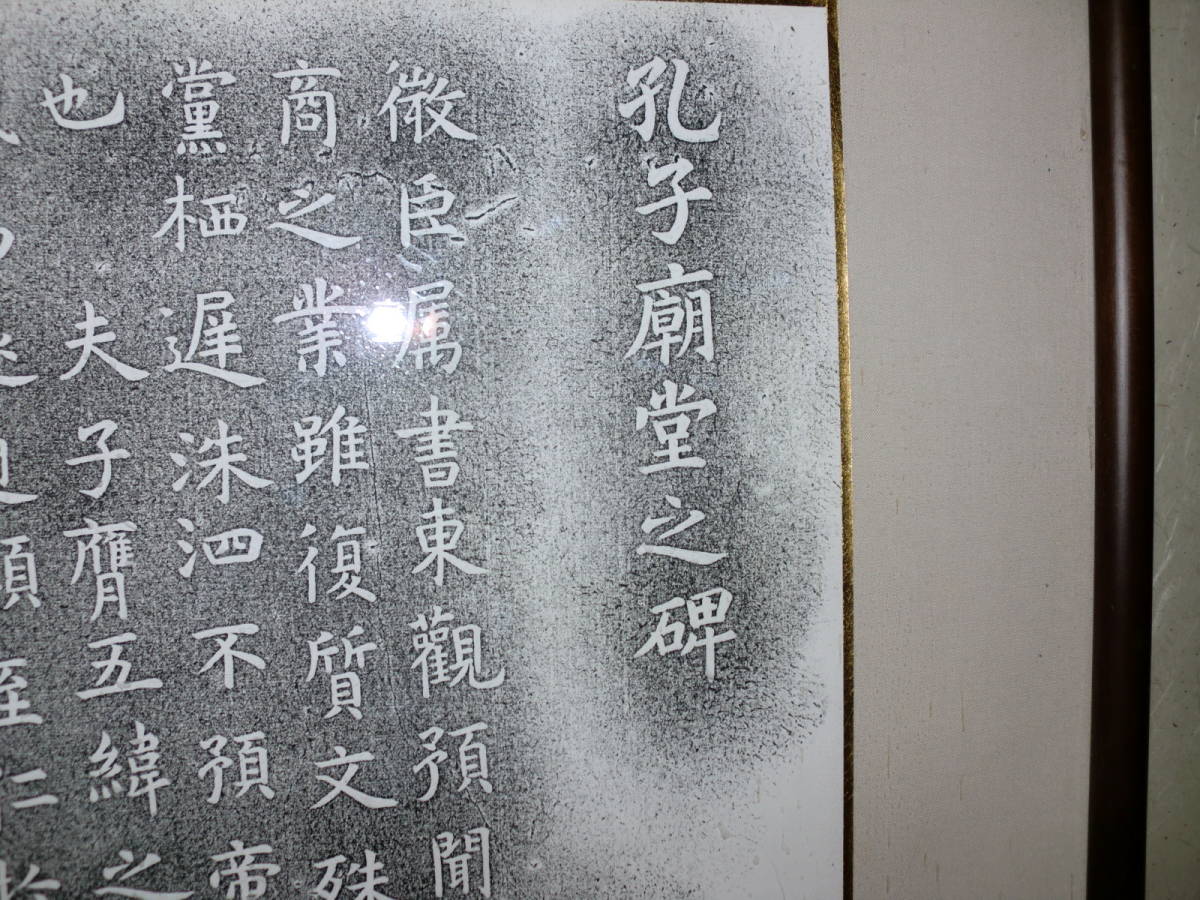 孔子廟堂之碑
微臣属書東觀預聞
商之業雖復質文殊
黨栖遲洙泗不預帝
也夫子膺五緯之